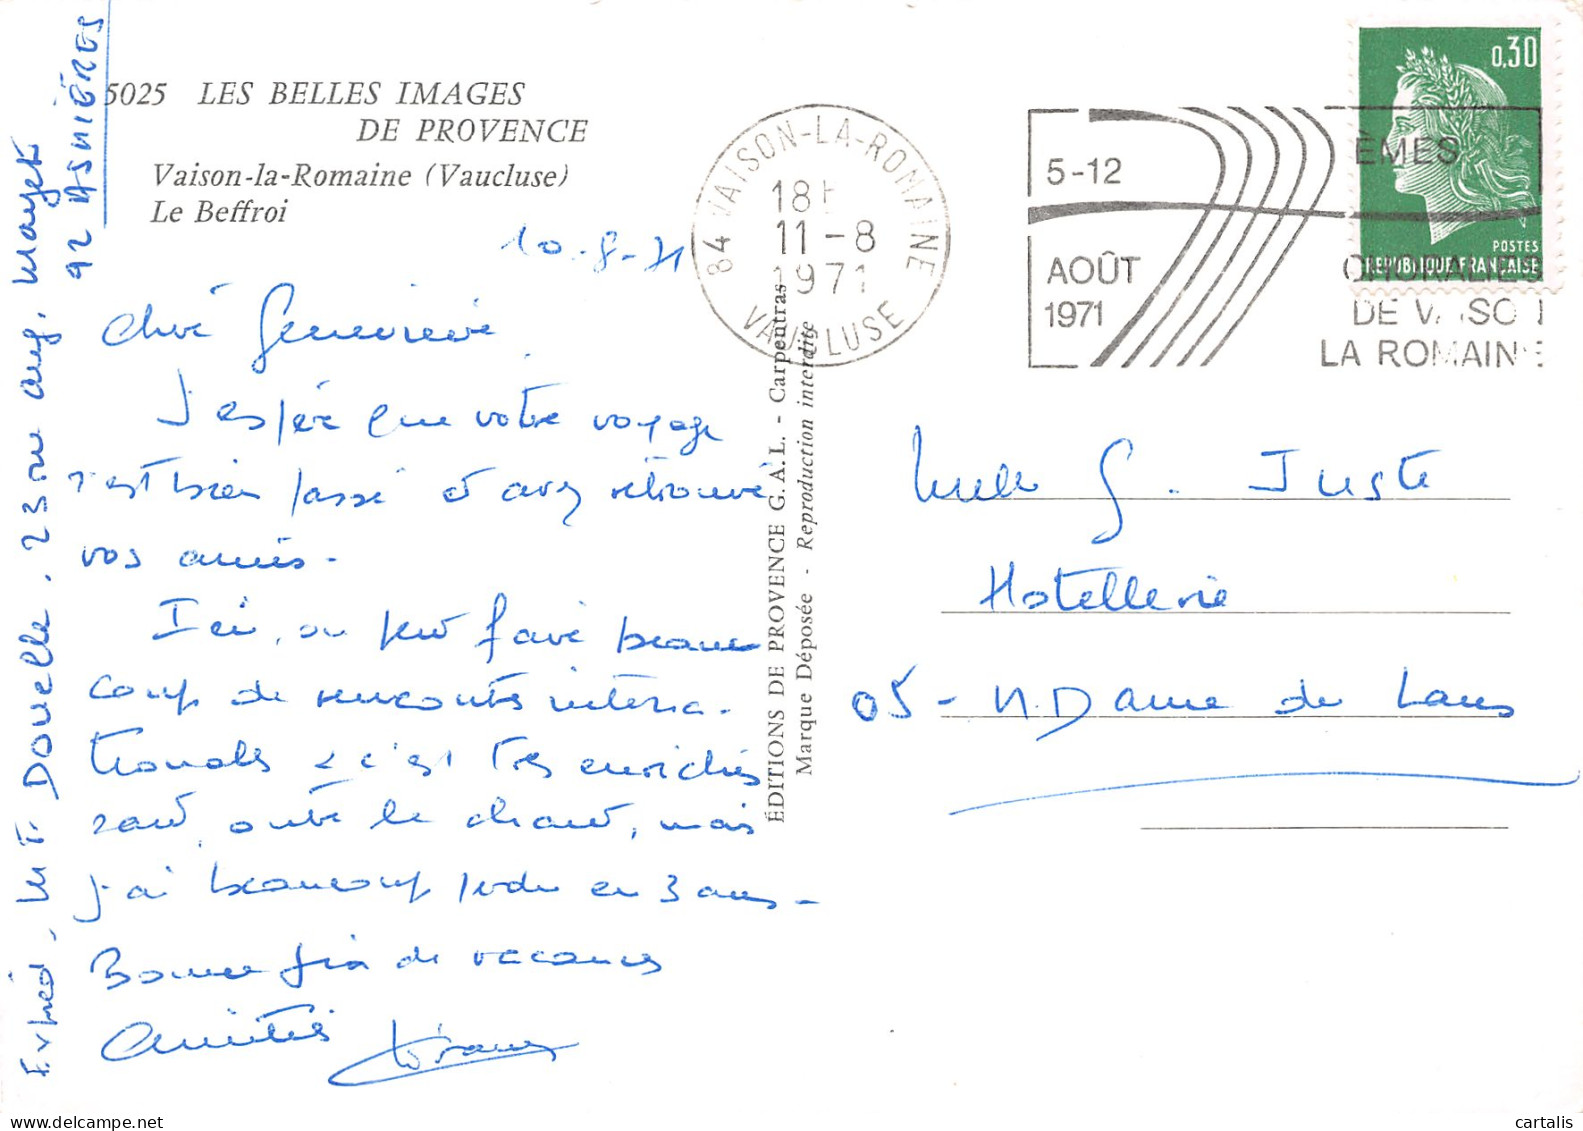 5025 LES BELLES IMAGES
DE PROVENCE
Vaison-la-Romaine (Vaucluse)
Le Beffroi
10-8-71
Chère Geneviève,
J'espère que votre voyage
s'est bien passé et avez retrouvé
vos amies.
Ici, on peut faire beau
coup de rencontres interna-
tionales & c'est très enrichis
sant, outre le chant, mais
j'ai beaucoup perdu en 3 ans-
Bonne fin de vacances
Amitiés
Exped. MT. DOUELLE, 23 rue aug. Mayet
92 ASNIÈRES
ÉDITIONS DE PROVENCE G. A. L. - Carpentras
Marque Déposée - Reproduction interdite
84 VAISON-LA-ROMAINE
18H
11-8
1971
VAUCLUSE
5-12
AOÛT
1971
ÈMES
CHORALIES
DE VAISON
LA ROMAINE
0,30
POSTES
REPUBLIQUE FRANÇAISE
Melle G. Juste
Hostellerie
05-N. Dame du Laus
delcampe.net
cartalis